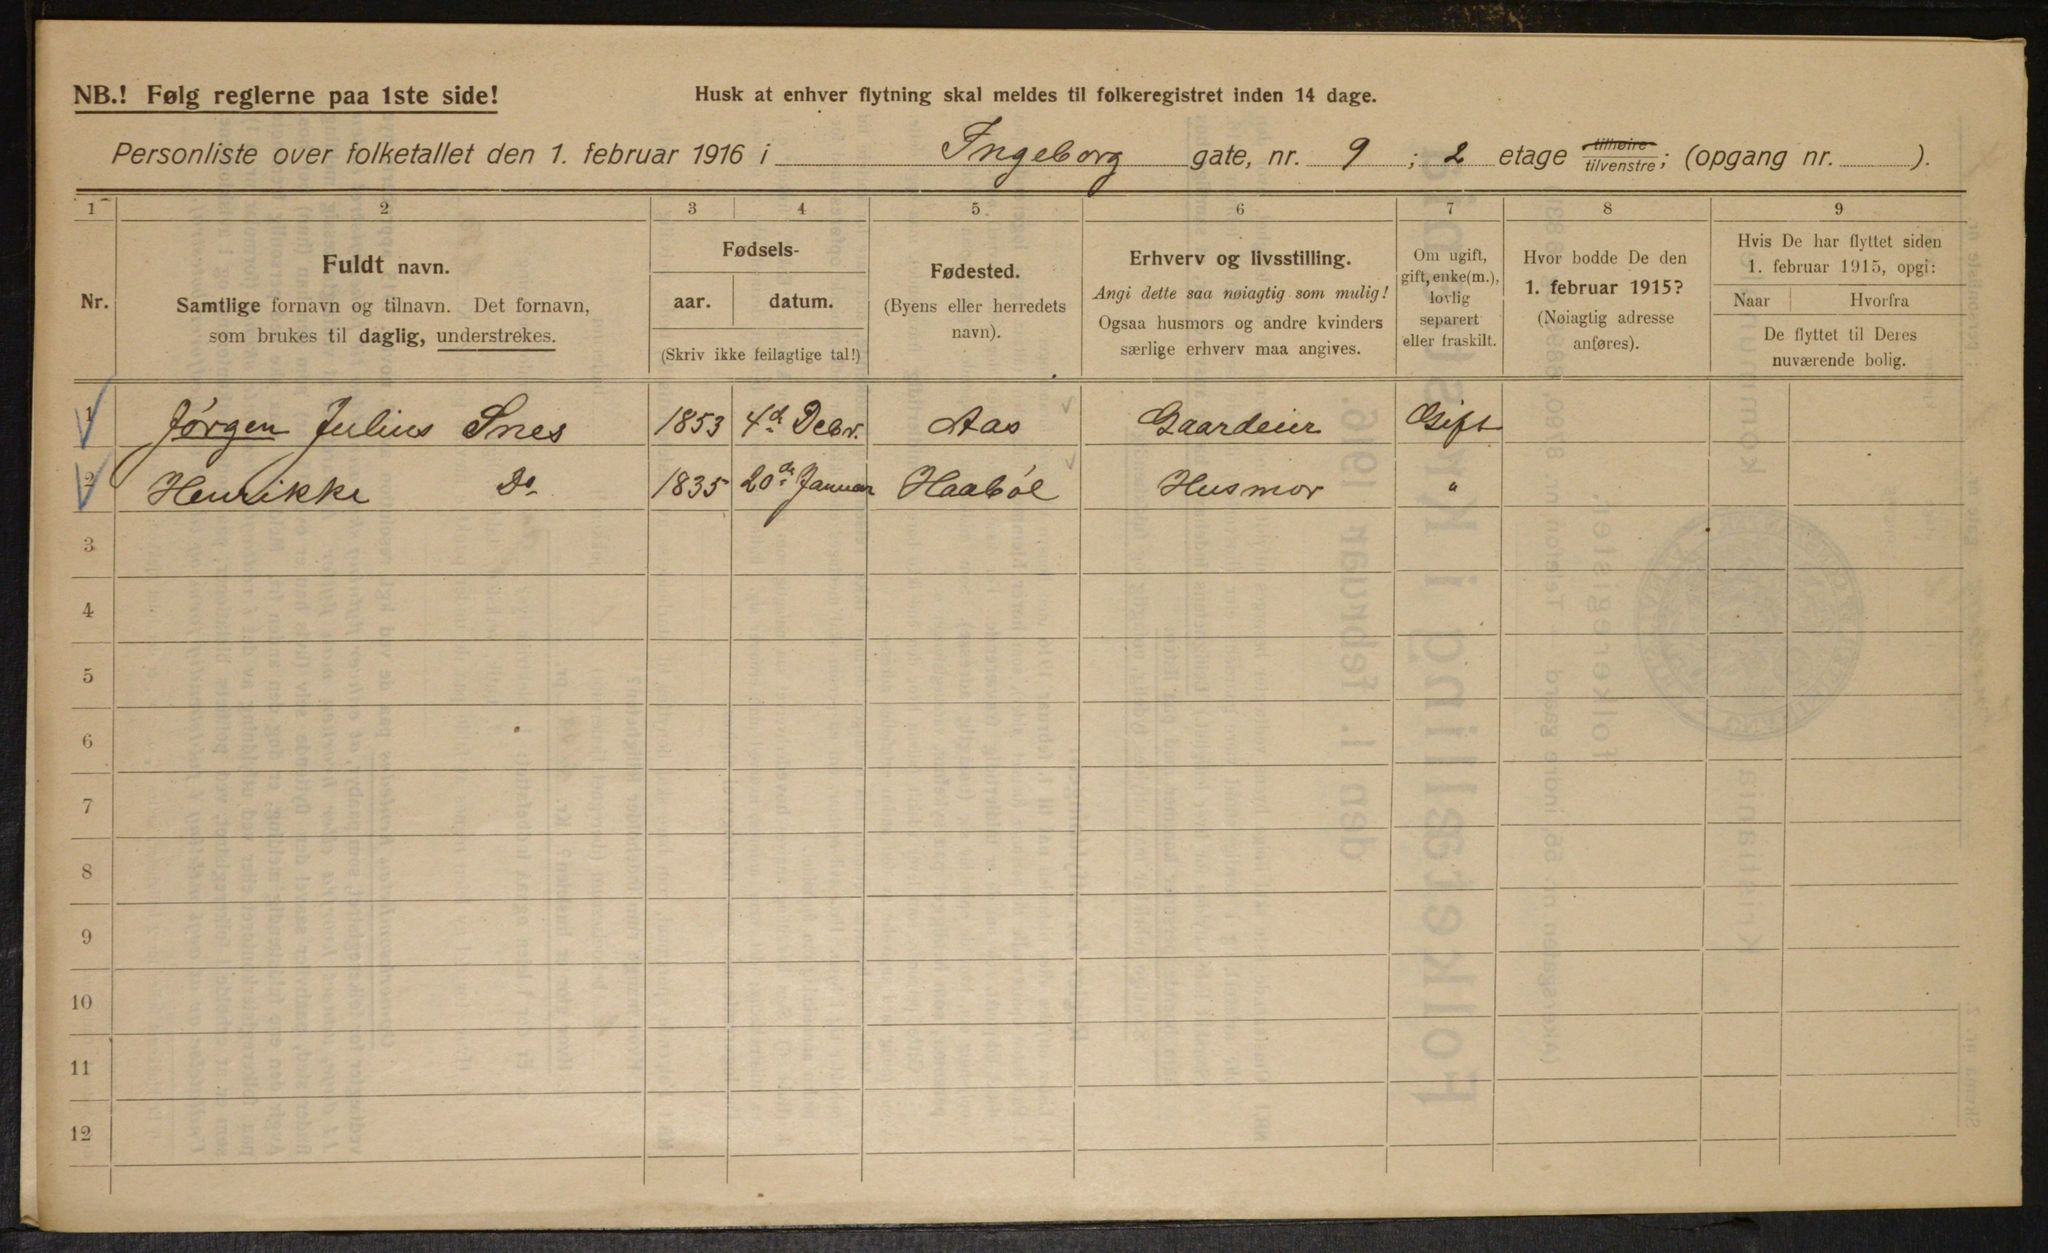 NB.! Følg reglerne paa 1ste side!
Husk at enhver flytning skal meldes til folkeregistret inden 14 dage.
Personliste over folketallet den 1. februar 1916 i Ingeborg gate, nr. 9 ; 2 etage tilhøire tilvenstre; (opgang nr. ).
1 2 3 4 5 6 7 8 9
Nr.
Fuldt navn.
Samtlige fornavn og tilnavn. Det fornavn,
som brukes til daglig, understrekes.
Fødsels-
aar. datum.
(Skriv ikke feilagtige tal!)
Fødested.
(Byens eller herredets
navn).
Erhverv og livsstilling.
Angi dette saa nøiagtig som mulig!
Ogsaa husmors og andre kvinders
særlige erhverv maa angives.
Om ugift,
gift, enke(m.),
lovlig
separert
eller fraskilt.
Hvor bodde De den
1. februar 1915?
(Nøiagtig adresse
anføres).
Hvis De har flyttet siden
1. februar 1915, opgi:
Naar Hvorfra
De flyttet til Deres
nuværende bolig.
1 Jørgen Julius Snes 1853 4d Debr. Aas Gaardeier Gift
2 Henrikke Do 1835 20de Januar Haabøl Husmor "
3
4
5
6
7
8
9
10
11
12